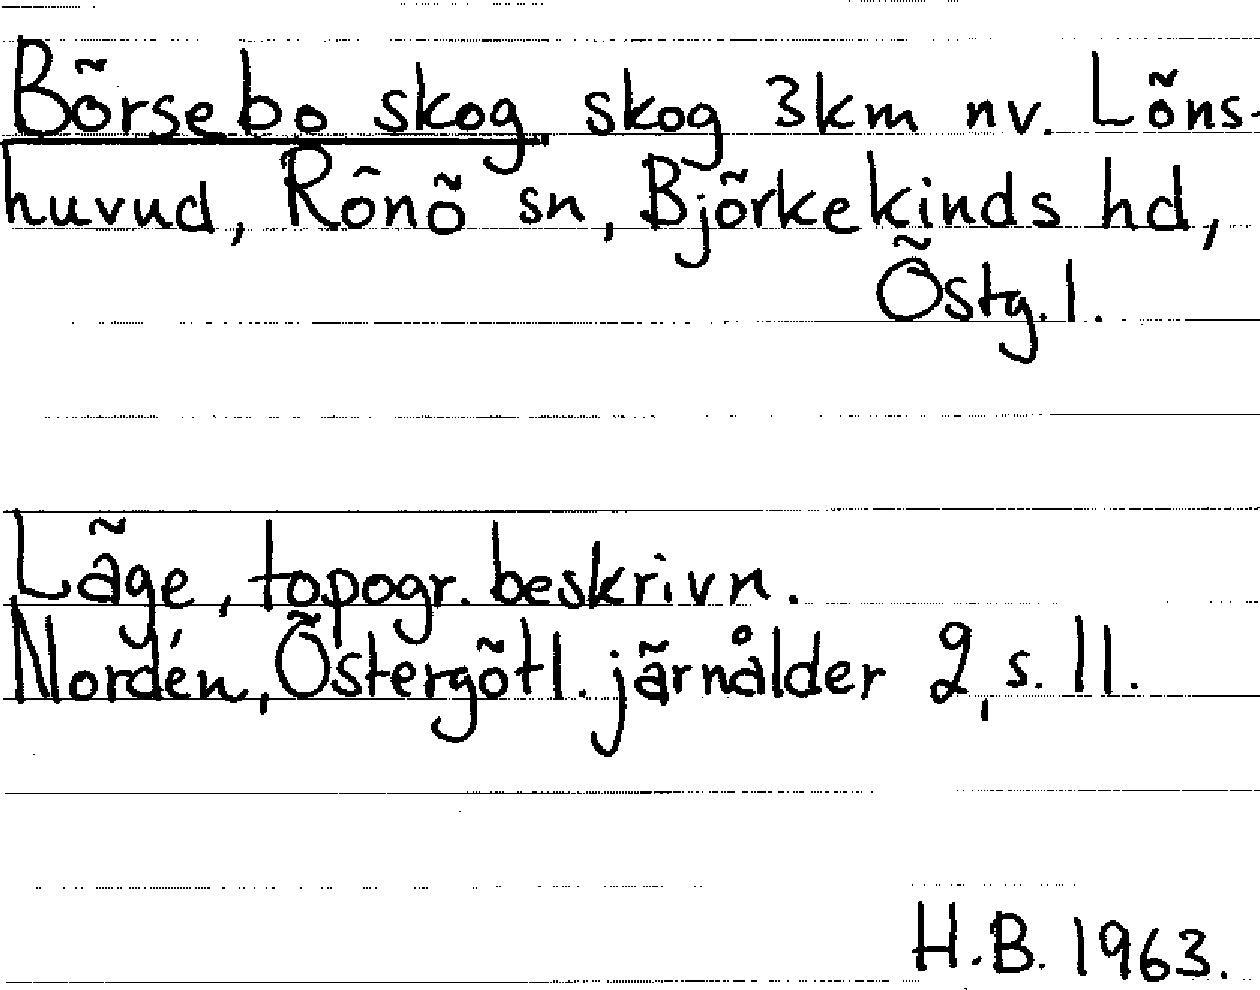 Börsebo skog skog 3km nv. Löns-
huvud, Rönö sn, Björkekinds hd,
Östg. l.
Läge, topogr. beskrivn.
Nordén, Östergötl. järnålder 2, s. 11.
H.B. 1963.